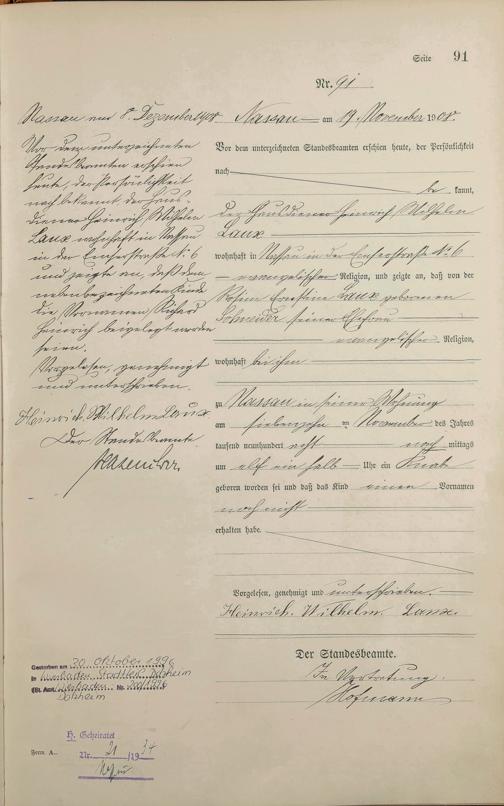 Seite 91
Nr. 91
Nassau am 8. Dezember 1908.
Vor dem unterzeichneten
Standesbeamten erschien
heute, der Persönlichkeit
nach bekannt, der Haus-
diener Heinrich Wilhelm
Laux wohnhaft in Nassau
in der Emserstraße No 6
und zeigte an, daß dem
nebenbezeichneten Kind
die Vornamen Richard
Heinrich beigelegt worden
seien.
Vorgelesen, genehmigt
und unterschrieben.
Heinrich Wilhelm Laux
Der Standesbeamte
Nassau am 19. November 1908.
Vor dem unterzeichneten Standesbeamten erschien heute, der Persönlichkeit
nach be kannt,
der Hausdiener Heinrich Wilhelm
Laux
wohnhaft in Nassau in der Emserstraße No 6
evangelischer Religion, und zeigte an, daß von der
Ernestine Laux geborenen
Schneider seiner Ehefrau
evangelischer Religion,
wohnhaft bei ihm
zu Nassau in seiner Wohnung
am siebenzehn ten November des Jahres
tausend neunhundert acht nach mittags
um elf ein halb Uhr ein Knabe
geboren worden sei und daß das Kind einen Vornamen
noch nicht
erhalten habe.
Vorgelesen, genehmigt und unterschrieben.
Heinrich Wilhelm Laux
Der Standesbeamte.
In Vertretung
Hofmann
Gestorben am 20. Oktober 1996
in Wiesbaden Stadtteil Dotzheim
(St. Amt Wiesbaden- Nr.
Dotzheim
Form. A.
H. Geheiratet
Nr. 21 /19 34